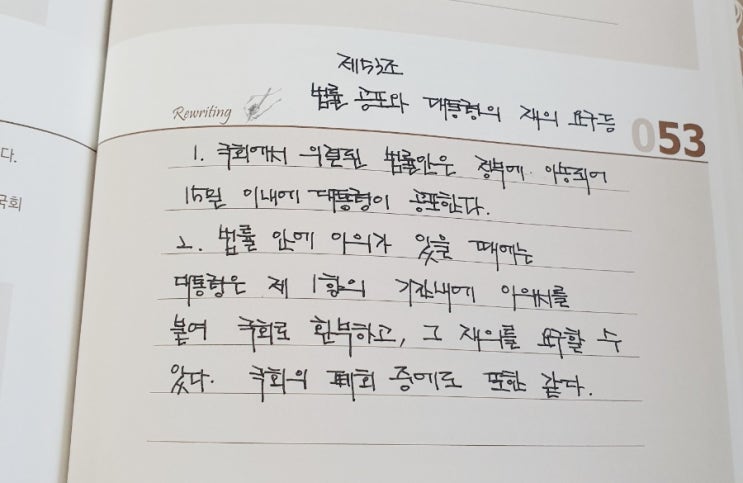 제53조
법률 공포와 대통령의 재의 요구등
Rewriting
053
1. 국회에서 의결된 법률안은 정부에 이송되어
15일 이내에 대통령이 공포한다.
2. 법률 안에 이의가 있을 때에는
대통령은 제 1항의 기간내에 이의서를
붙여 국회로 환부하고, 그 재의를 요구할 수
있다. 국회의 폐회 중에도 또한 같다.
다.
국회